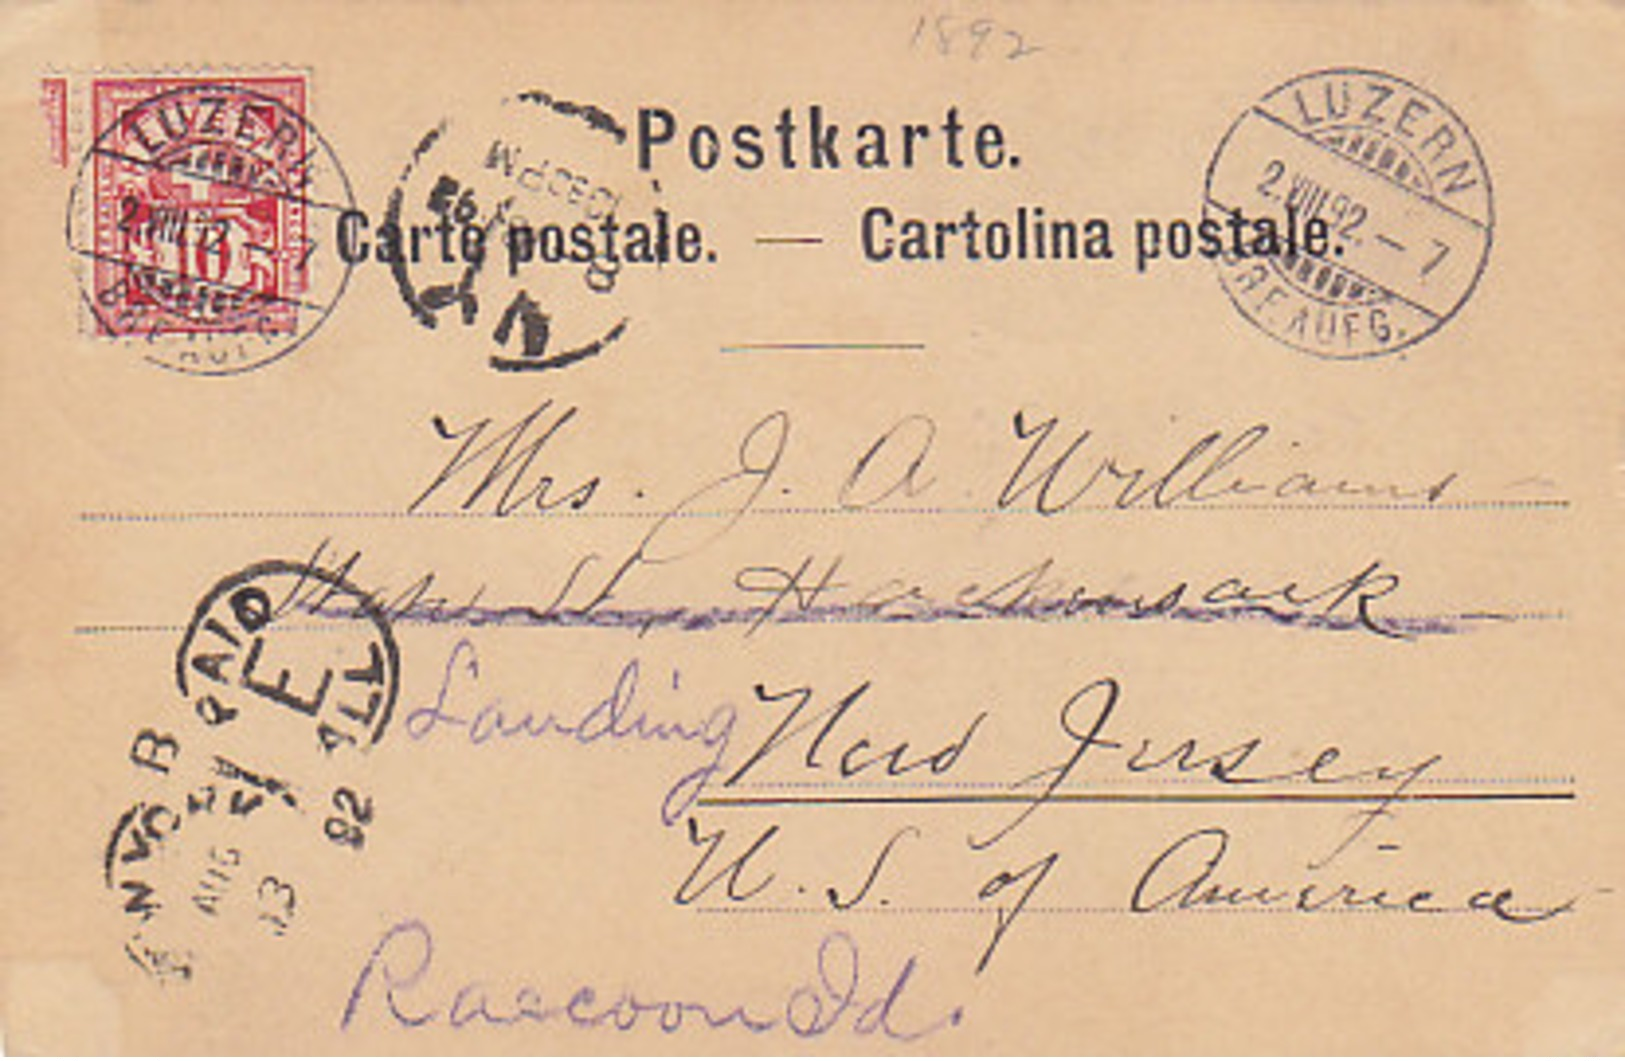 1892
Postkarte.
Carte postale. — Cartolina postale.
LUZERN
2.VIII.92.–7
BRF. AUFG.
LUZERN
2.VIII.92.–7
BRF. AUFG.
10
Mrs. J. A. Williams
St, Hackensack
Landing New Jersey
U. S. of America
Raccoon Isd.
PAID
E
ALL
AUG
13
92